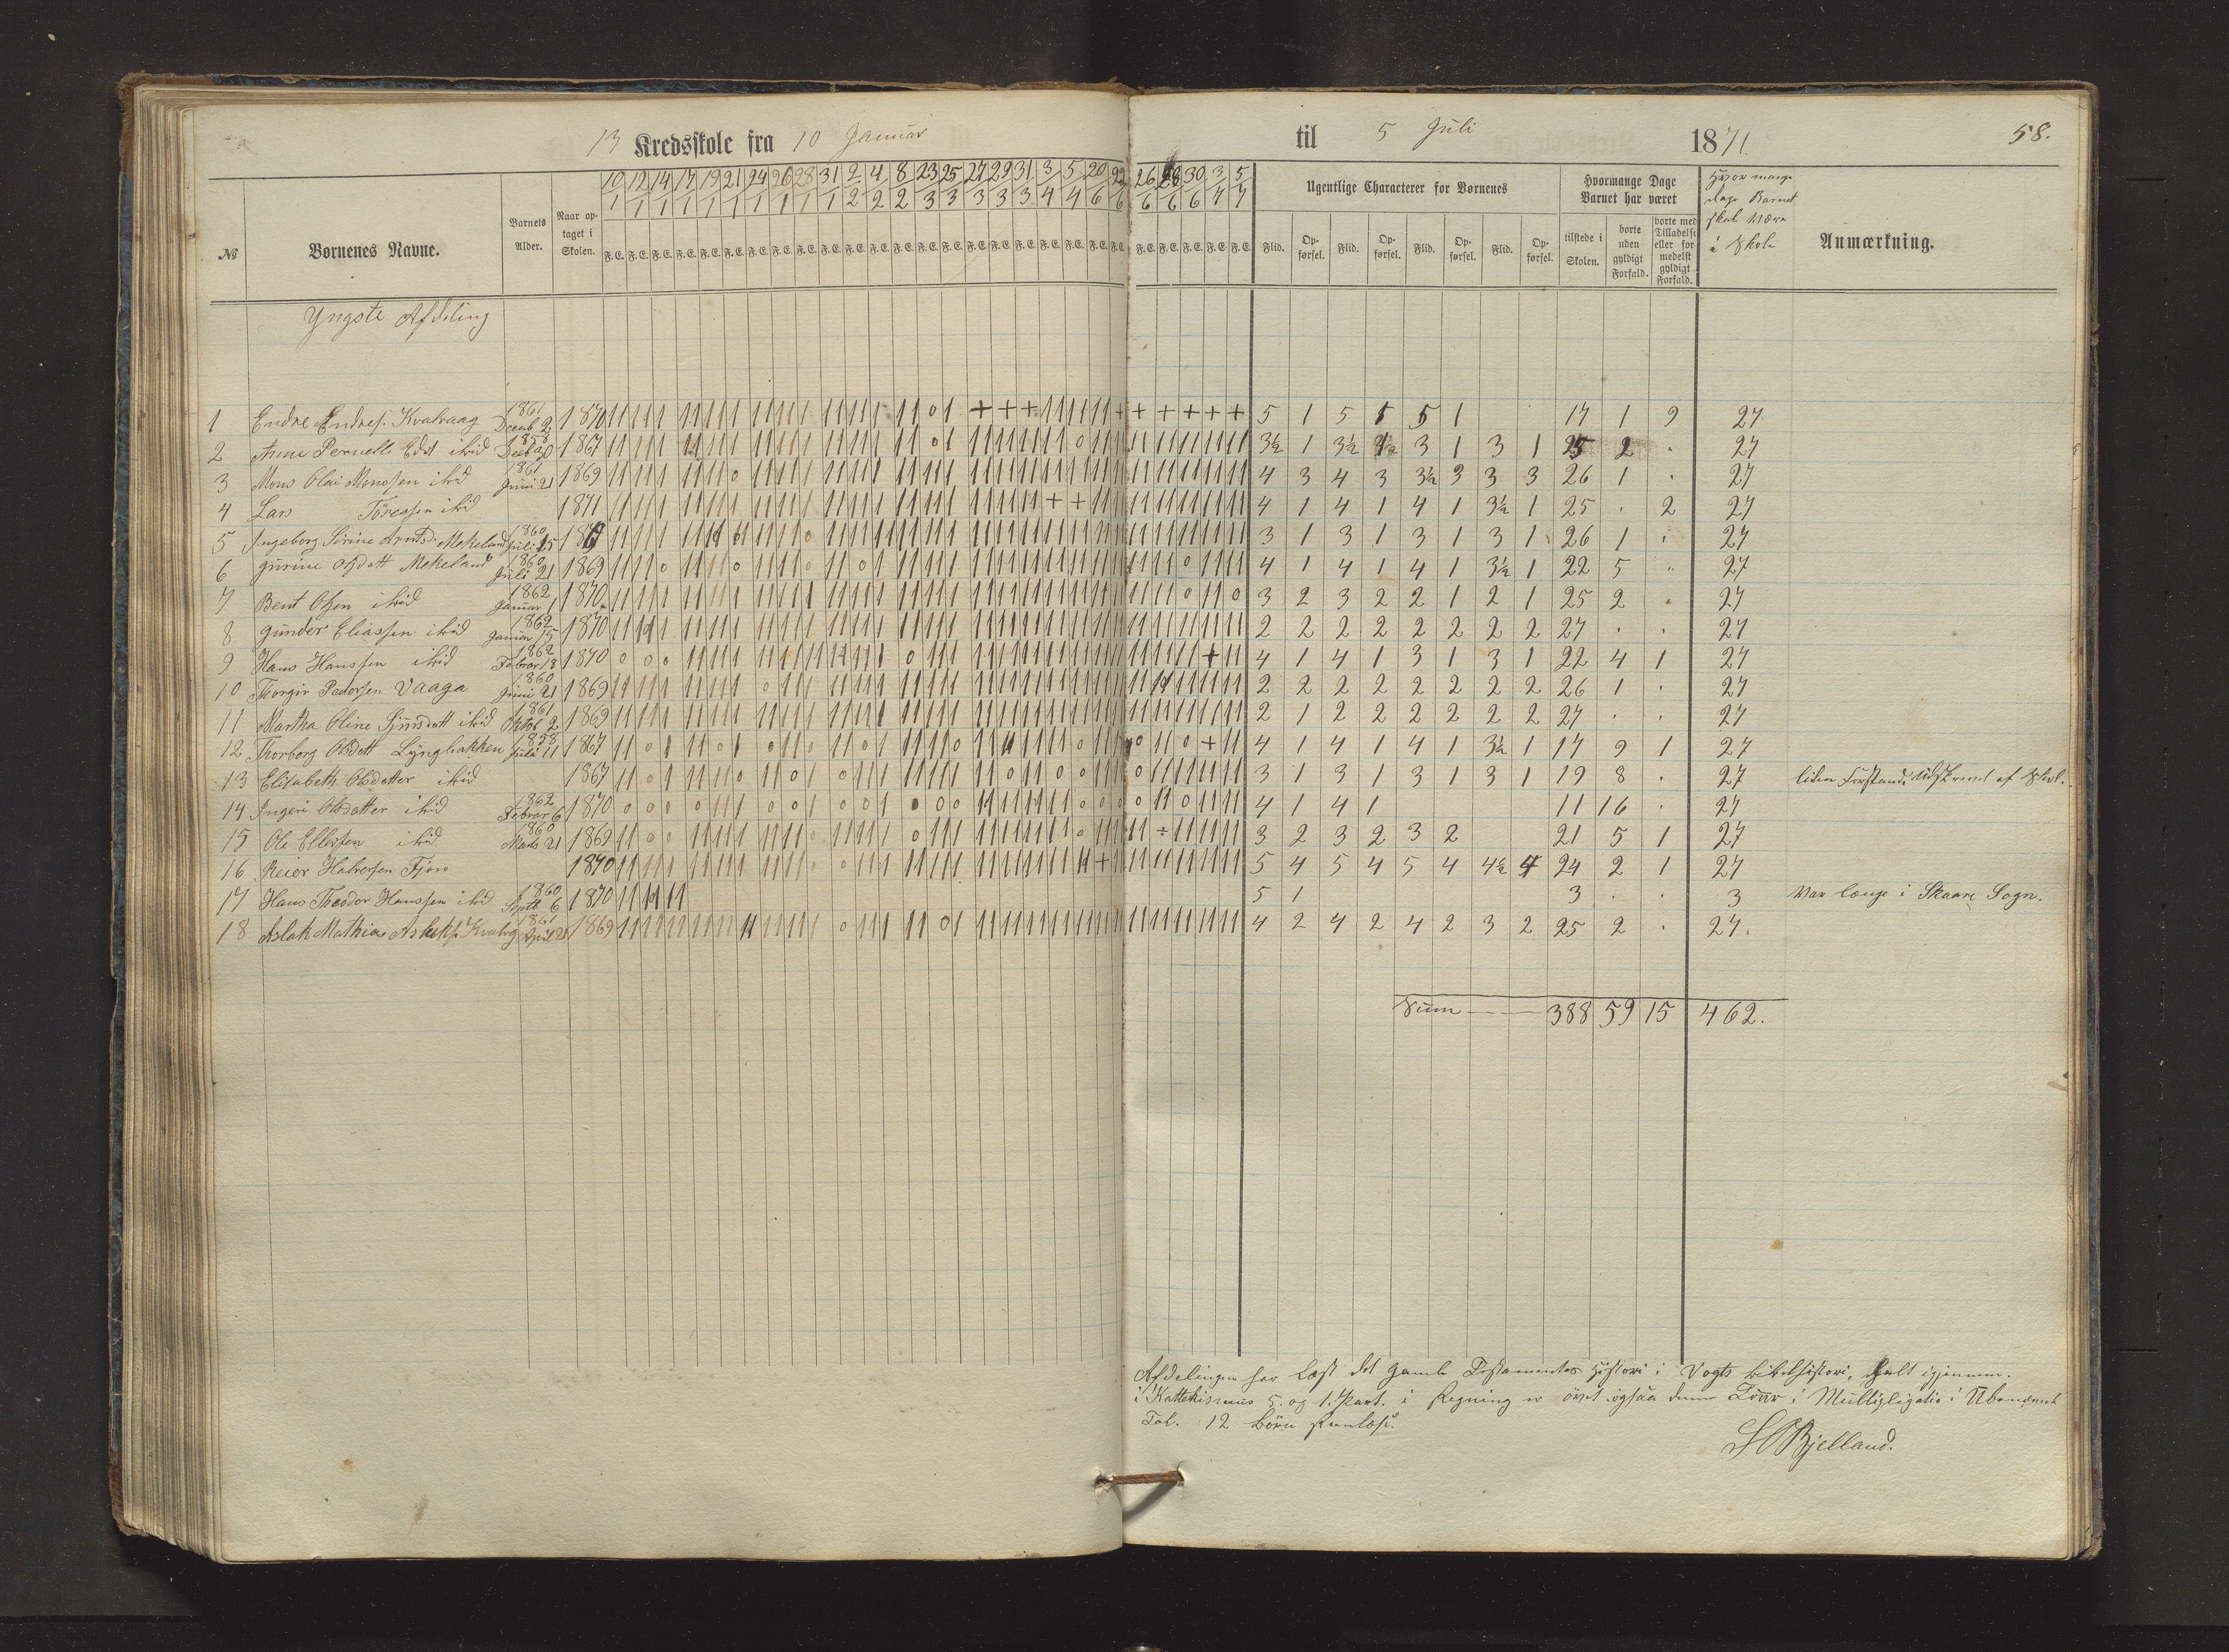 13 Kredsskole fra 10 Januar til 5 Juli 1871. 58.
№ Børnenes Navne. Barnets Alder. Naar optaget i Skolen. 10/1 12/1 14/1 17/1 19/1 21/1 24/1 26/1 28/1 31/1 2/2 4/2 8/2 23/3 25/3 27/3 29/3 31/3 3/4 5/4 20/6 22/6 26/6 28/6 30/6 3/7 5/7 Ugentlige Characterer for Børnenes Hvormange Dage Barnet har været Hvor mange Dage Barnet skal være i Skole Anmærkning.
F. E. F. E. F. E. F. E. F. E. F. E. F. E. F. E. F. E. F. E. F. E. F. E. F. E. F. E. F. E. F. E. F. E. F. E. F. E. F. E. F. E. F. E. F. E. F. E. F. E. F. E. F. E. Flid. Opførsel. Flid. Opførsel. Flid. Opførsel. Flid. Opførsel. tilstede i Skolen. borte uden gyldigt Forfald. borte med Tilladelse eller formedelst gyldigt Forfald.
Yngste Afdeling
1 Endre Endres. Kvalvaag 1861 Decemb 2 1870 5 1 5 1 5 1 17 1 9 27
2 Anne Pernelle Edt ibid 1858 Deeb 30 1867 3½ 1 3½ 3 1 3 1 25 2 . 27
3 Mons Olai Monssen ibid 1861 Juni 21 1869 4 3 4 3 3½ 3 3 3 26 1 . 27
4 Lars Tøressen ibid 1871 4 1 4 1 4 1 3½ 1 25 . 2 27
5 Ingeborg Sirine Arntsd. Mekeland 1860 Juli 25 3 1 3 1 3 1 3 1 26 1 . 27
6 Gurine Olsdatt Mekeland 1860 Juli 21 1869 4 1 4 1 4 1 3½ 1 22 5 " 27
7 Bent Olsen ibid 1862 Januar 1 1870. 3 2 3 2 2 1 2 1 25 2 . 27
8 Gunder Eliassen ibid 1862 Januar 15 1870 2 2 2 2 2 2 2 2 27 . . 27
9 Hans Hanssen ibid 1862 Febrar 18 1870 4 1 4 1 3 1 3 1 22 4 1 27
10 Thorgir Pedersen Vaaga 1860 Juni 21 1869 2 2 2 2 2 2 2 2 26 1 . 27
11 Martha Oline Sjursdatt ibid 1861 Oktob 2. 1869 2 1 2 2 2 2 2 2 27 . . 27
12 Thorborg Olsdatt Lyngbakken 1858 Juli 11 1867 4 1 4 1 4 1 3½ 1 17 9 1 27
13 Elisabeth Olsdatter ibid 1867 3 1 3 1 3 1 3 1 19 8 . 27 liden Forstand. Udskrevet af Skol.
14 Ingeri Olsdatter ibid 1862 Febrar 6 1870 4 1 4 1 11 16 . 27
15 Ole Ellevsen ibid 1860 Marts 21 1869 3 2 3 2 3 2 21 5 1 27
16 Reier Halvorsen Fjon 1870 5 4 5 4 5 4 4½ 4 24 2 1 27
17 Hans Theodor Hanssen ibid 1860 Septb 6 1870 5 1 3 . . 3 Var længe i Skaare Sogn.
18 Aslak Mathias Aslaks. Kvalvg 1861 April 21 1869 4 2 4 2 4 2 3 2 25 2 . 27.
Sum 388 59 15 462.
Afdelingen har læst det gamle Testamentes Historie i Vogts bibelhistori, helt igjennem.
i Kattekismus 5. og 1. Part. i Regning er øvet ogsaa denne Tour i Multipligatio i Ubenævnt
Tal. 12 børn skrive.
S O Bjelland.